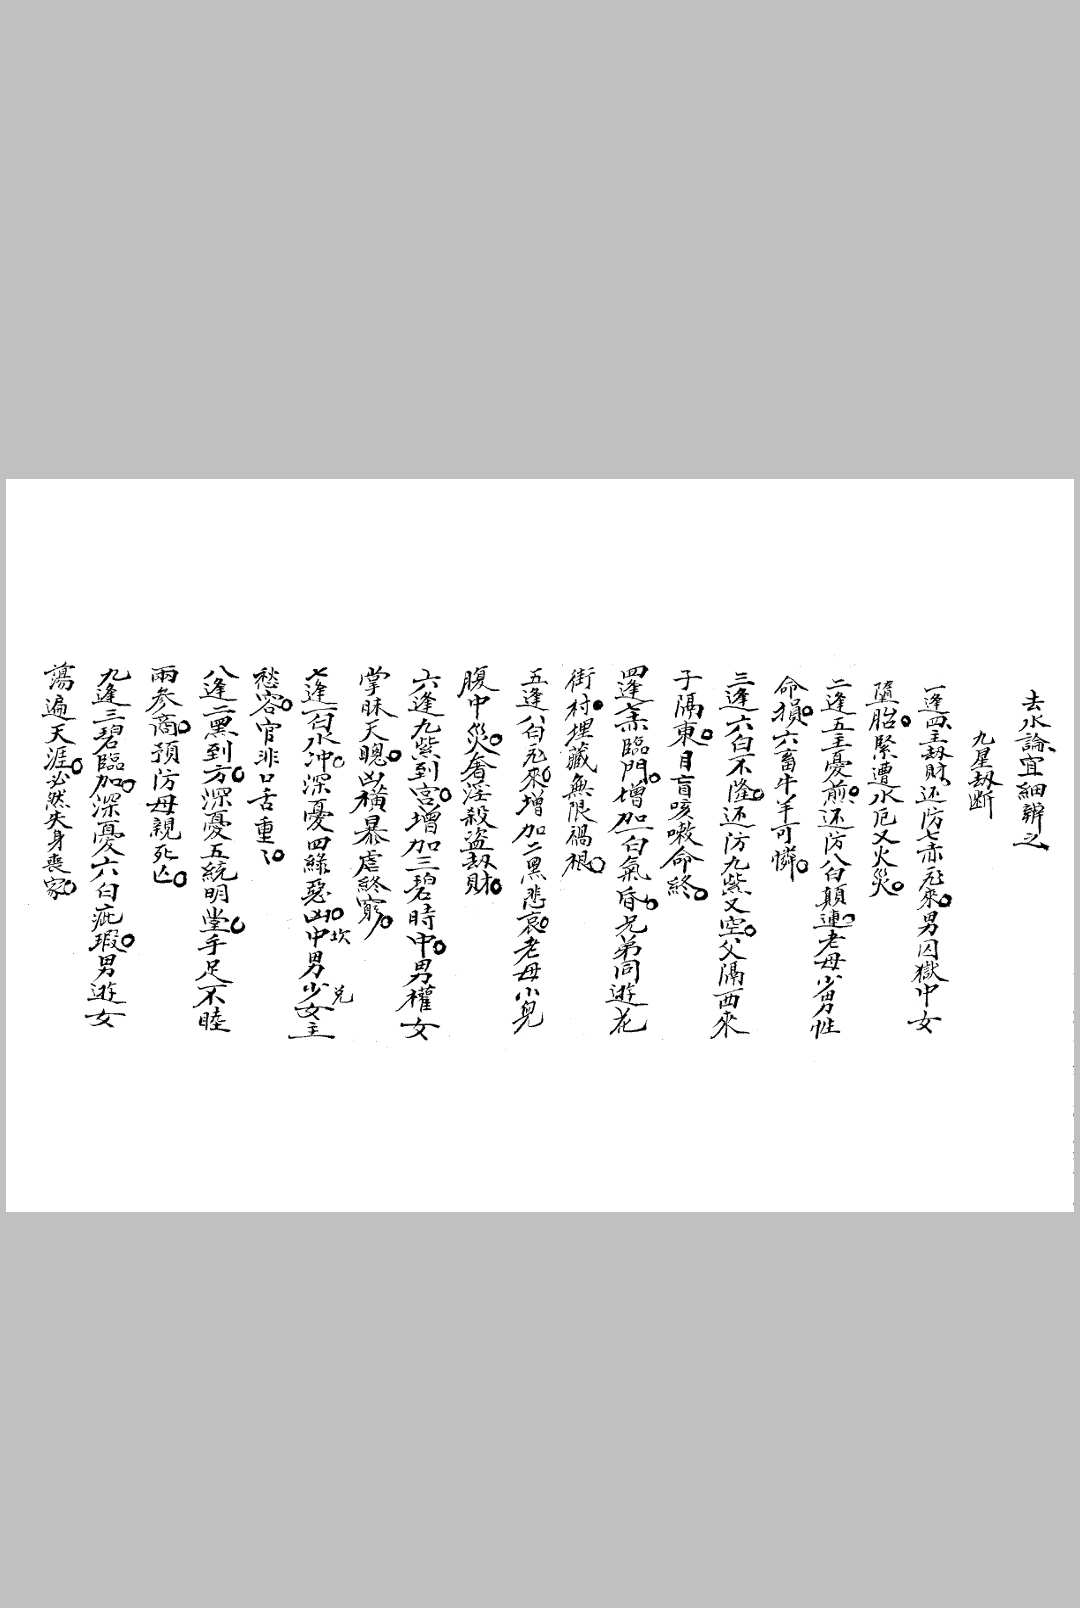 去水論宜細辨之
九星刼斷
一逢四主刼財还防七赤飛來男囚獄中女
墮胎緊遭水厄又火災
二逢五主憂前还防八白顛連老母少男性
命損六畜牛羊可憐
三逢六白不隆还防九紫又空父隔西來
子隔東目盲咳嗽命終
四逢七赤臨門增加一白氣昏兄弟同遊花
街村埋藏無限禍根
五逢八白飛來增加二黑悲哀老母小兒
腹中災奢淫殺盗刼財
六逢九紫到宮增加三碧時中男權女
掌昧天聰凶橫暴虐終窮
七逢一白水冲深憂四綠惡凶中男少女主
坎 兌
愁容官非口舌重〻
八逢二黑到方深憂五統明堂手足不睦
兩参商預防母親死亡
九逢三碧臨加深憂六白疵瑕男遊女
蕩遍天涯必然失身喪家